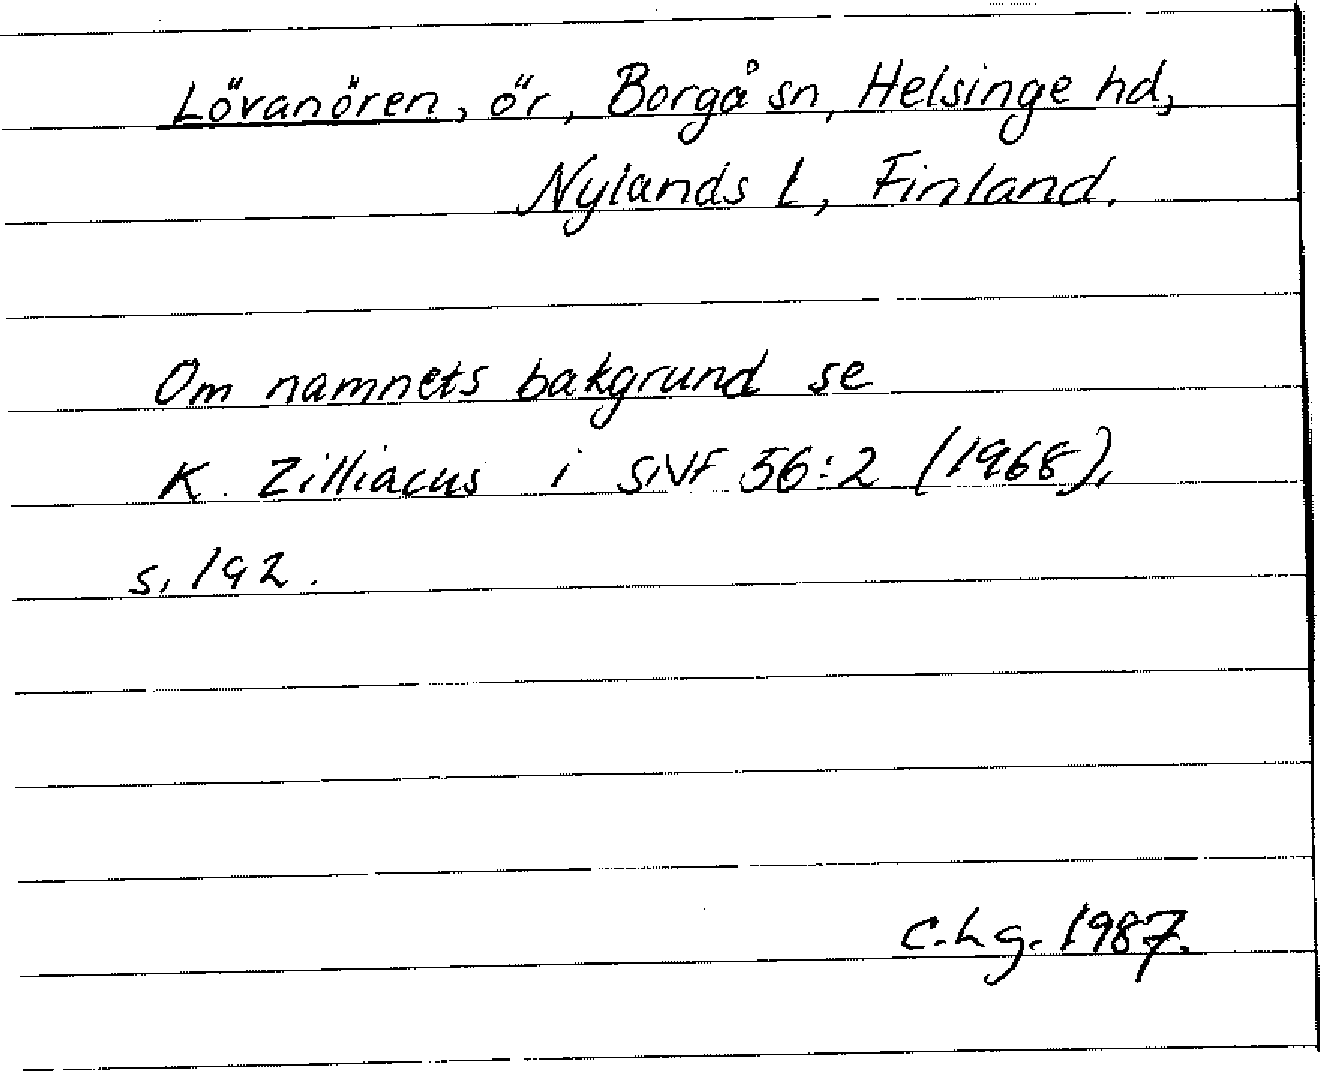 Lövanören, ör, Borgå sn, Helsinge hd,
Nylands L, Finland.
Om namnets bakgrund se
K. Zilliacus i SNF 56:2 (1968),
s. 192.
C.Lg. 1987.